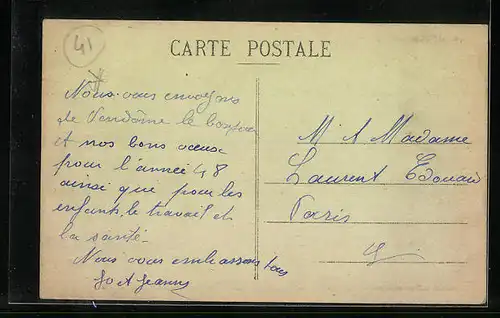 41
CARTE POSTALE
Nous vous envoyons
de Vendôme le bonjour
et nos bons voeux
pour l'année 48
ainsi que pour les
enfants, le travail et
la santé.
Nous vous embrassons tous
Jo et Jeanny
M. & Madame
Laurent Edouard
Paris